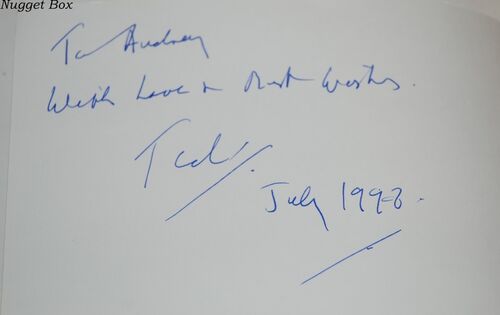 Nugget Box
To Audrey
With Love & Best Wishes.
Ted
July 1998.